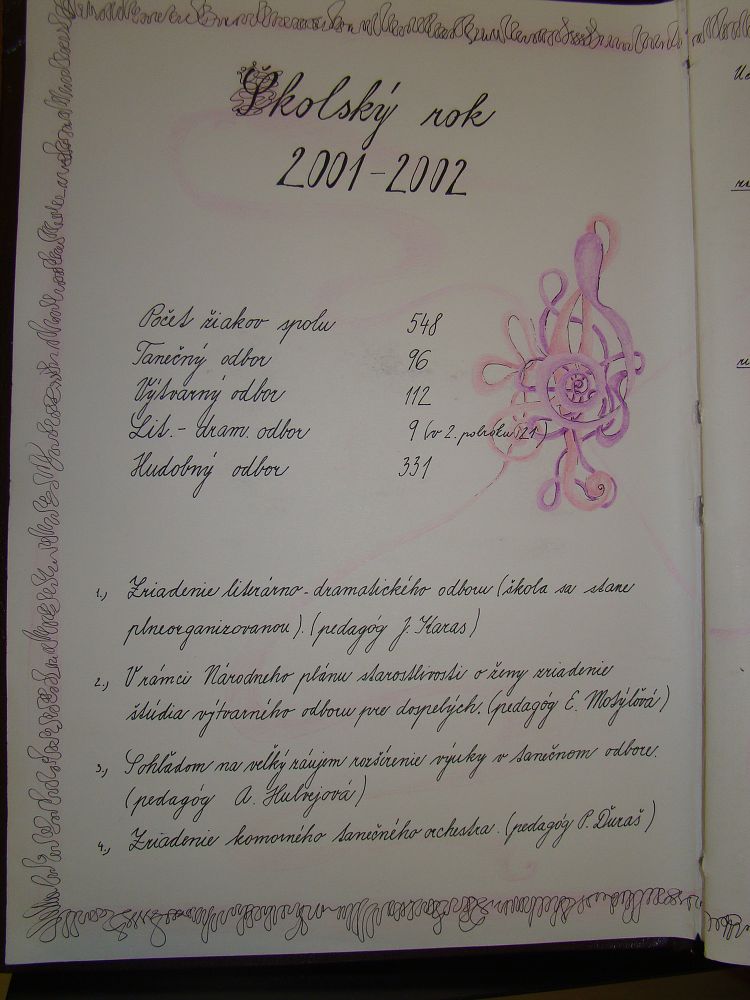 Školský rok
2001-2002
Počet žiakov spolu 548
Tanečný odbor 96
Výtvarný odbor 112
Lit.- dram. odbor 9 (v 2. polroku 21)
Hudobný odbor 331
1., Zriadenie literárno-dramatického odboru (škola sa stane
plneorganizovanou). (pedagóg J. Karas)
2., V rámci Národneho plánu starostlivosti o ženy zriadenie
štúdia výtvarného odboru pre dospelých. (pedagóg E. Motýľová)
3., Sohľadom na veľký záujem rozšírenie výuky v tanečnom odbore.
(pedagóg A. Hulvejová)
4., Zriadenie komorného tanečného orchestra. (pedagóg P. Ďuraš)